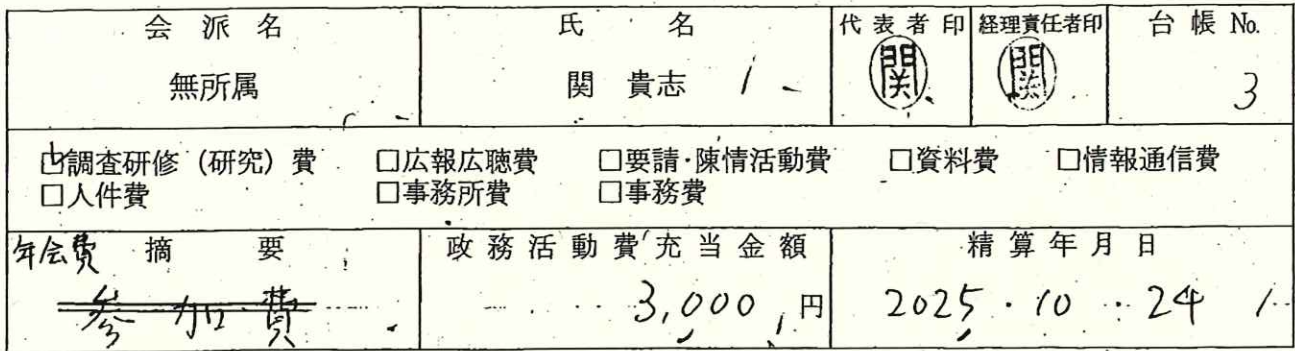 会派名 氏名 代表者印 経理責任者印 台帳 No.
無所属 関 貴志 関 関 3
☑調査研修(研究)費 □広報広聴費 □要請・陳情活動費 □資料費 □情報通信費
□人件費 □事務所費 □事務費
年会費 摘要 政務活動費充当金額 精算年月日
参加費 3,000 円 2025・10・24